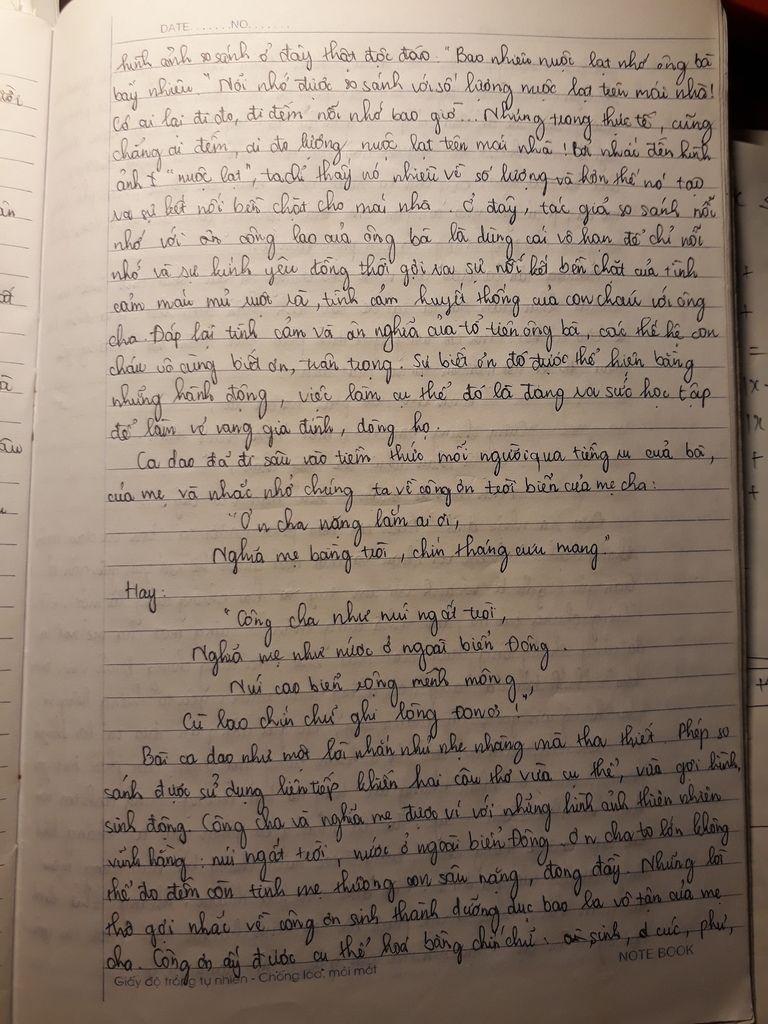 DATE........NO........
hình ảnh so sánh ở đây thật độc đáo. "Bao nhiêu nuộc lạt nhớ ông bà
bấy nhiêu." Nỗi nhớ được so sánh với số lượng nuộc lạt trên mái nhà!
Có ai lại đi đo, đi đếm nỗi nhớ bao giờ... Nhưng trong thực tế, cũng
chẳng ai đếm, ai đo lượng nuộc lạt trên mái nhà! Bởi nhắc đến hình
ảnh "nuộc lạt", ta chỉ thấy nó nhiều về số lượng và hơn thế nó tạo
ra sự kết nối bền chặt cho mái nhà. Ở đây, tác giả so sánh nỗi
nhớ với ơn công lao của ông bà là dùng cái vô hạn để chỉ nỗi
nhớ và sự kính yêu đồng thời gợi ra sự nối kết bền chặt của tình
cảm máu mủ ruột rà, tình cảm huyết thống của con cháu với ông
cha. Đáp lại tình cảm và ân nghĩa của tổ tiên ông bà, các thế hệ con
cháu vô cùng biết ơn, trân trọng. Sự biết ơn đó được thể hiện bằng
những hành động, việc làm cụ thể đó là đang ra sức học tập
để làm vẻ vang gia đình, dòng họ.
Ca dao đã đi sâu vào tiềm thức mỗi người qua tiếng ru của bà,
của mẹ và nhắc nhở chúng ta về công ơn trời biển của mẹ cha:
"Ơn cha nặng lắm ai ơi,
Nghĩa mẹ bằng trời, chín tháng cưu mang."
Hay:
"Công cha như núi ngất trời,
Nghĩa mẹ như nước ở ngoài biển Đông.
Núi cao biển rộng mênh mông,
Cù lao chín chữ ghi lòng con ơi!"
Bài ca dao như một lời nhắn nhủ nhẹ nhàng mà tha thiết. Phép so
sánh được sử dụng liên tiếp khiến hai câu thơ vừa cụ thể, vừa gợi hình,
sinh động. Công cha và nghĩa mẹ được ví với những hình ảnh thiên nhiên
vĩnh hằng: núi ngất trời, nước ở ngoài biển Đông. Ơn cha to lớn không
thể đo đếm còn tình mẹ thương con sâu nặng, đong đầy. Những lời
thơ gợi nhắc về công ơn sinh thành dưỡng dục bao la vô tận của mẹ
cha. Công ơn ấy được cụ thể hoá bằng chín chữ: sinh, cúc, phủ,
Giấy độ trắng tự nhiên - Chống lóa, mỏi mắt
NOTE BOOK